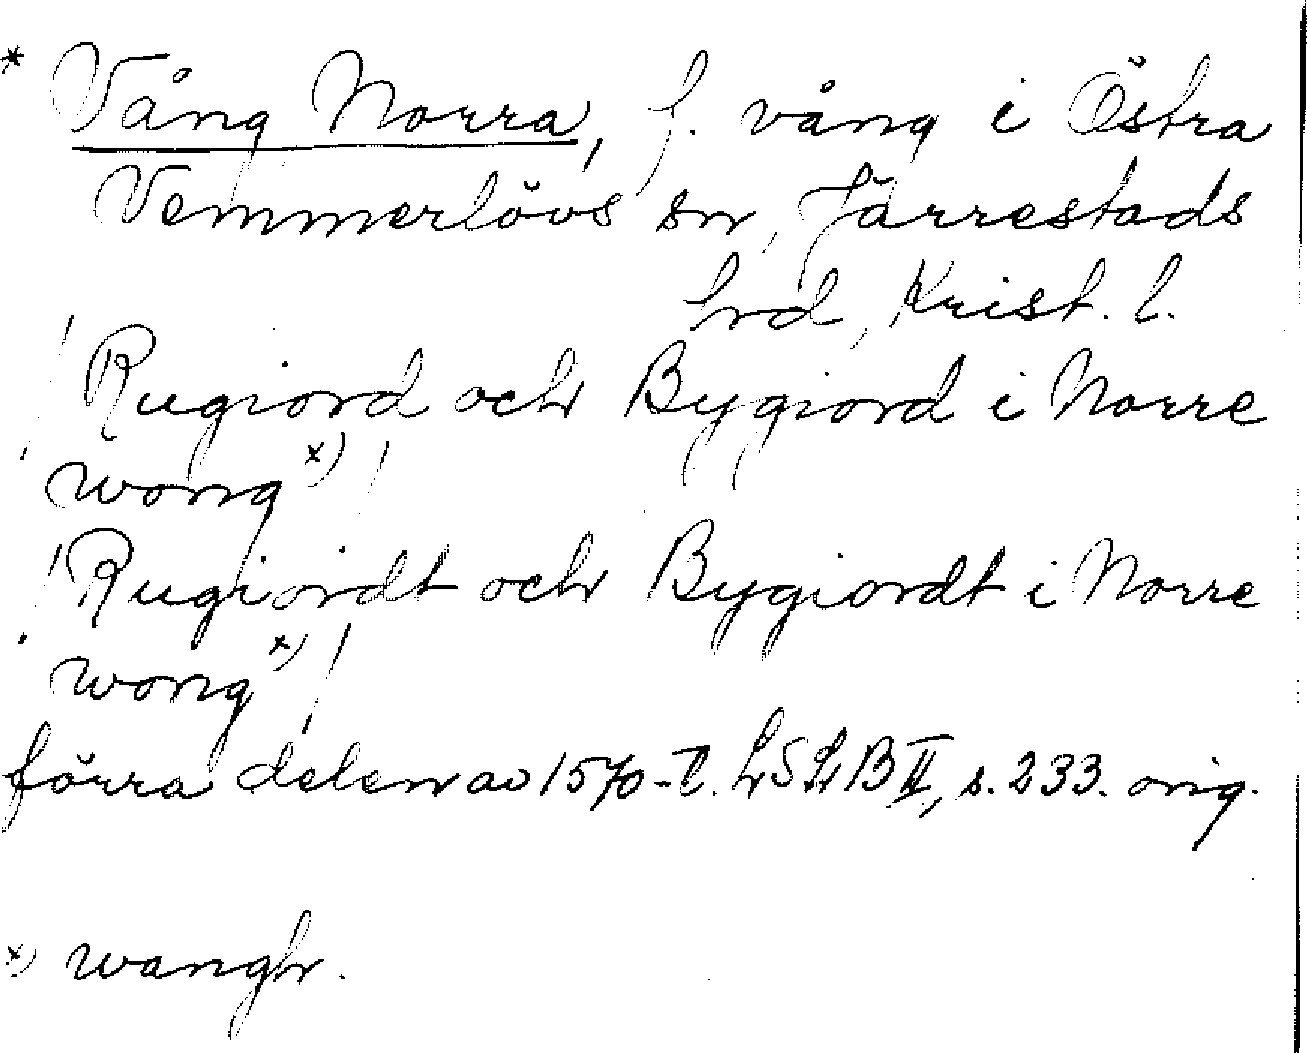 * Vång Norra, f. vång i Östra
Vemmerlövs sn, Järrestads
hrd, Krist. l.
/ Rugiord och Bygiord i Norre
wong x) /
/ Rugiordt och Bygiordt i Norre
wong x) /
förra delen av 1570-t. LSLB II, s. 233. orig.
x) wangh.